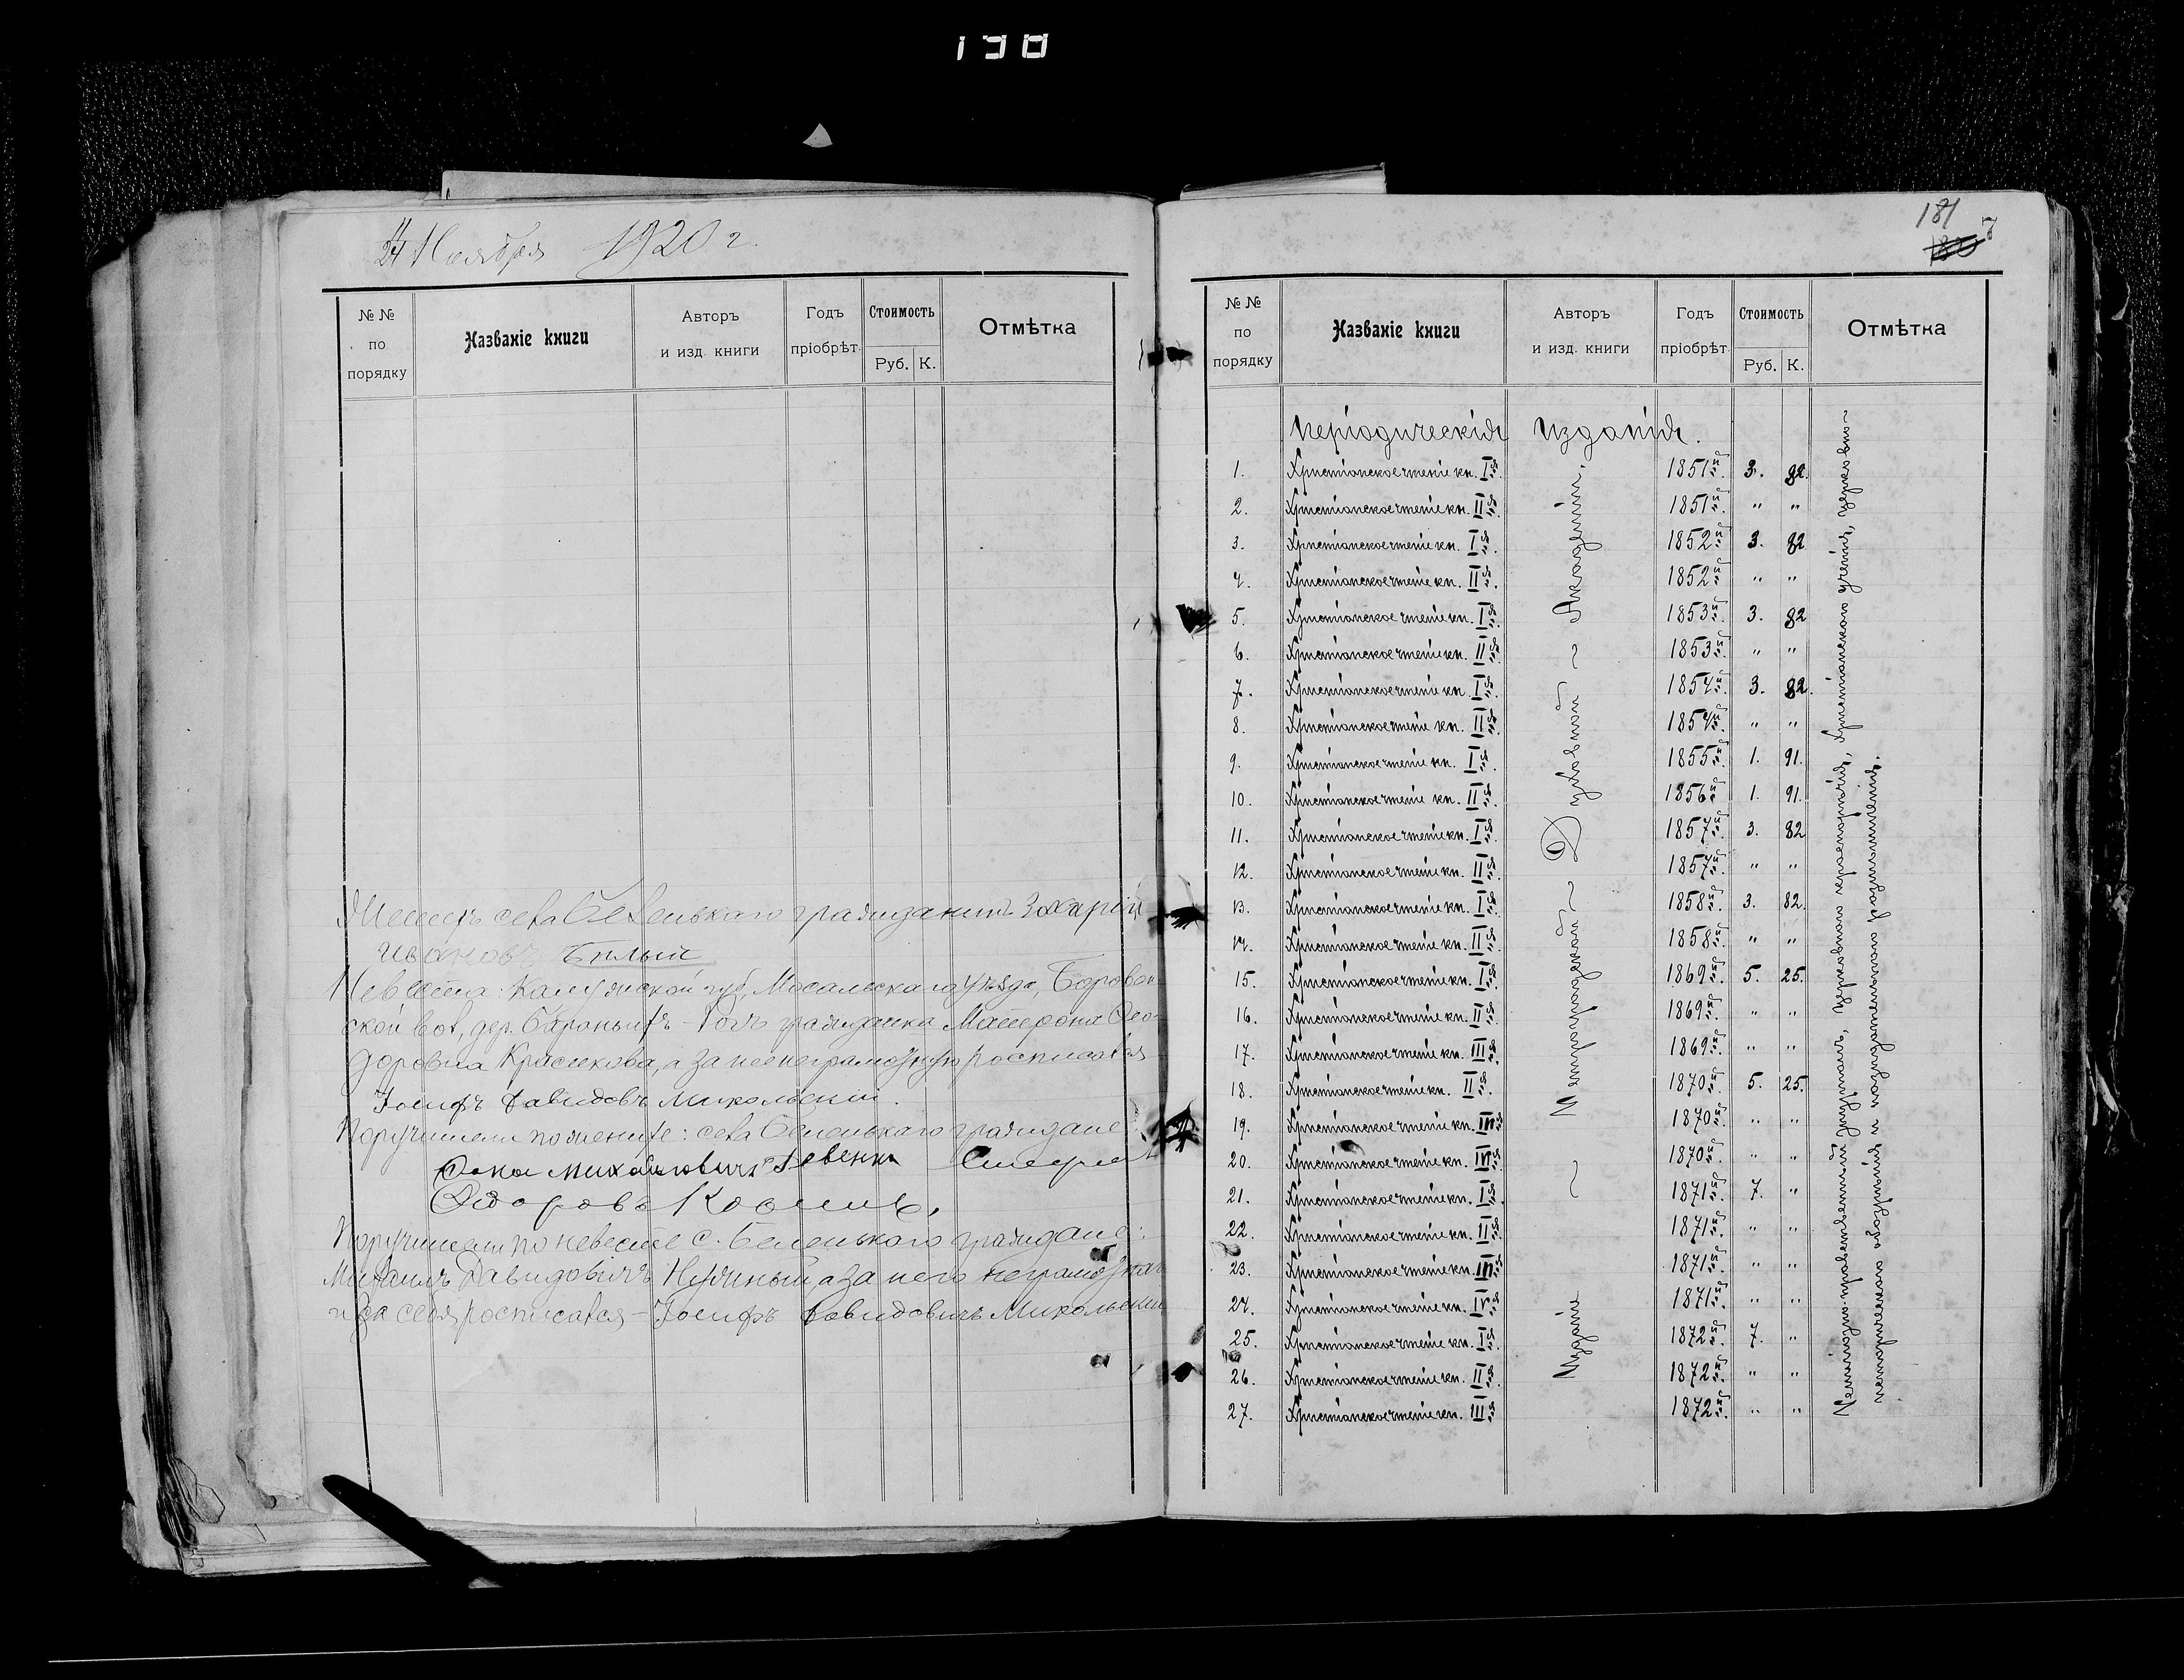 24 Ноября 1920 г.
№ № по порядку Названіе книги Авторъ и изд. книги Годъ пріобрѣт. Стоимость Руб. К. Отмѣтка
Женихъ села Беленькаго гражданинъ Захарій
Ивановъ Бѣлый
Невеста: Калужской губ, Мосальскаго уѣзда, Боровен
ской вол, дер. гражданка Матрона Ѳео-
доровна а за нее неграмотную росписался
Іосифъ Давидовъ Никольскій.
Поручители по женихе: села Беленькаго граждане
Михайловичъ
Ѳедоровъ
Поручители по невесте с. Беленького граждане:
Михаилъ Давидовичъ а за него неграмотнаг
и за себя росписался – Іосифъ Давидовичъ Никольскій
181
180
7
№ № по порядку Названіе книги Авторъ и изд. книги Годъ пріобрѣт. Стоимость Руб. К. Отмѣтка
Періодическія изданія.
1. Христіанское чтеніе кн. I я. 1851 й. 3. 82.
2. Христіанское чтеніе кн. II я. 1851 й. " "
3. Христіанское чтеніе кн. I я. 1852 й. 3. 82
4. Христіанское чтеніе кн. II я. 1852 й. " "
5. Христіанское чтеніе кн. I я. 1853 й. 3. 82
6. Христіанское чтеніе кн. II я. 1853 й. " "
7. Христіанское чтеніе кн. I я. 1854 й. 3. 82.
8. Христіанское чтеніе кн. II я. 1854 й. " "
9. Христіанское чтеніе кн. I я. 1855 й. 1. 91.
10. Христіанское чтеніе кн. II я. 1856 й. 1. 91.
11. Христіанское чтеніе кн. I я. 1857 й. 3. 82
12. Христіанское чтеніе кн. II я. 1857 й. " "
13. Христіанское чтеніе кн. I я. 1858 й. 3. 82.
14. Христіанское чтеніе кн. II я. 1858 й. " "
15. Христіанское чтеніе кн. I я. 1869 й. 5. 25.
16. Христіанское чтеніе кн. II я. 1869 й. " "
17. Христіанское чтеніе кн. III я. 1869 й. " "
18. Христіанское чтеніе кн. II я. 1870 й. 5. 25.
19. Христіанское чтеніе кн. III я 1870 й. " "
20. Христіанское чтеніе кн. IV я 1870 й. " "
21. Христіанское чтеніе кн. I я. 1871 й. 7. "
22. Христіанское чтеніе кн. II я. 1871 й. " "
23. Христіанское чтеніе кн. III я 1871 й. " "
24. Христіанское чтеніе кн. IV я 1871 й. " "
25. Христіанское чтеніе кн. I я. 1872 й. 7. "
26. Христіанское чтеніе кн. II я. 1872 й. " "
27. Христіанское чтеніе кн. III я 1872 й. " "
Изданія ~ С.Петроградской ~ Духовной ~ Академіи.
Религіозно-нравственный журналъ, церковнаго краснорѣчія, христіанскаго ученія, церковно-
историческаго образованія и назидательнаго размышленія.